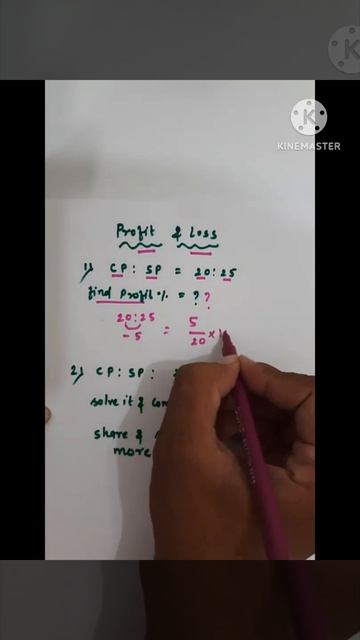 KINEMASTER
Profit & Loss
1) CP : SP = 20 : 25
find Profit % = ? ?
20 : 25
- 5 = 5/20 ×
2) CP : SP :
solve it &
share &
more